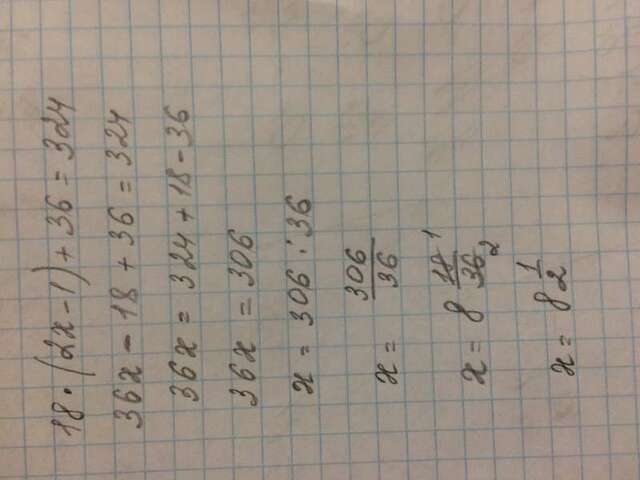 18 · (2x - 1) + 36 = 324
36x - 18 + 36 = 324
36x = 324 + 18 - 36
36x = 306
x = 306 : 36
x = 306/36
x = 8 18/36 1 2
x = 8 1/2